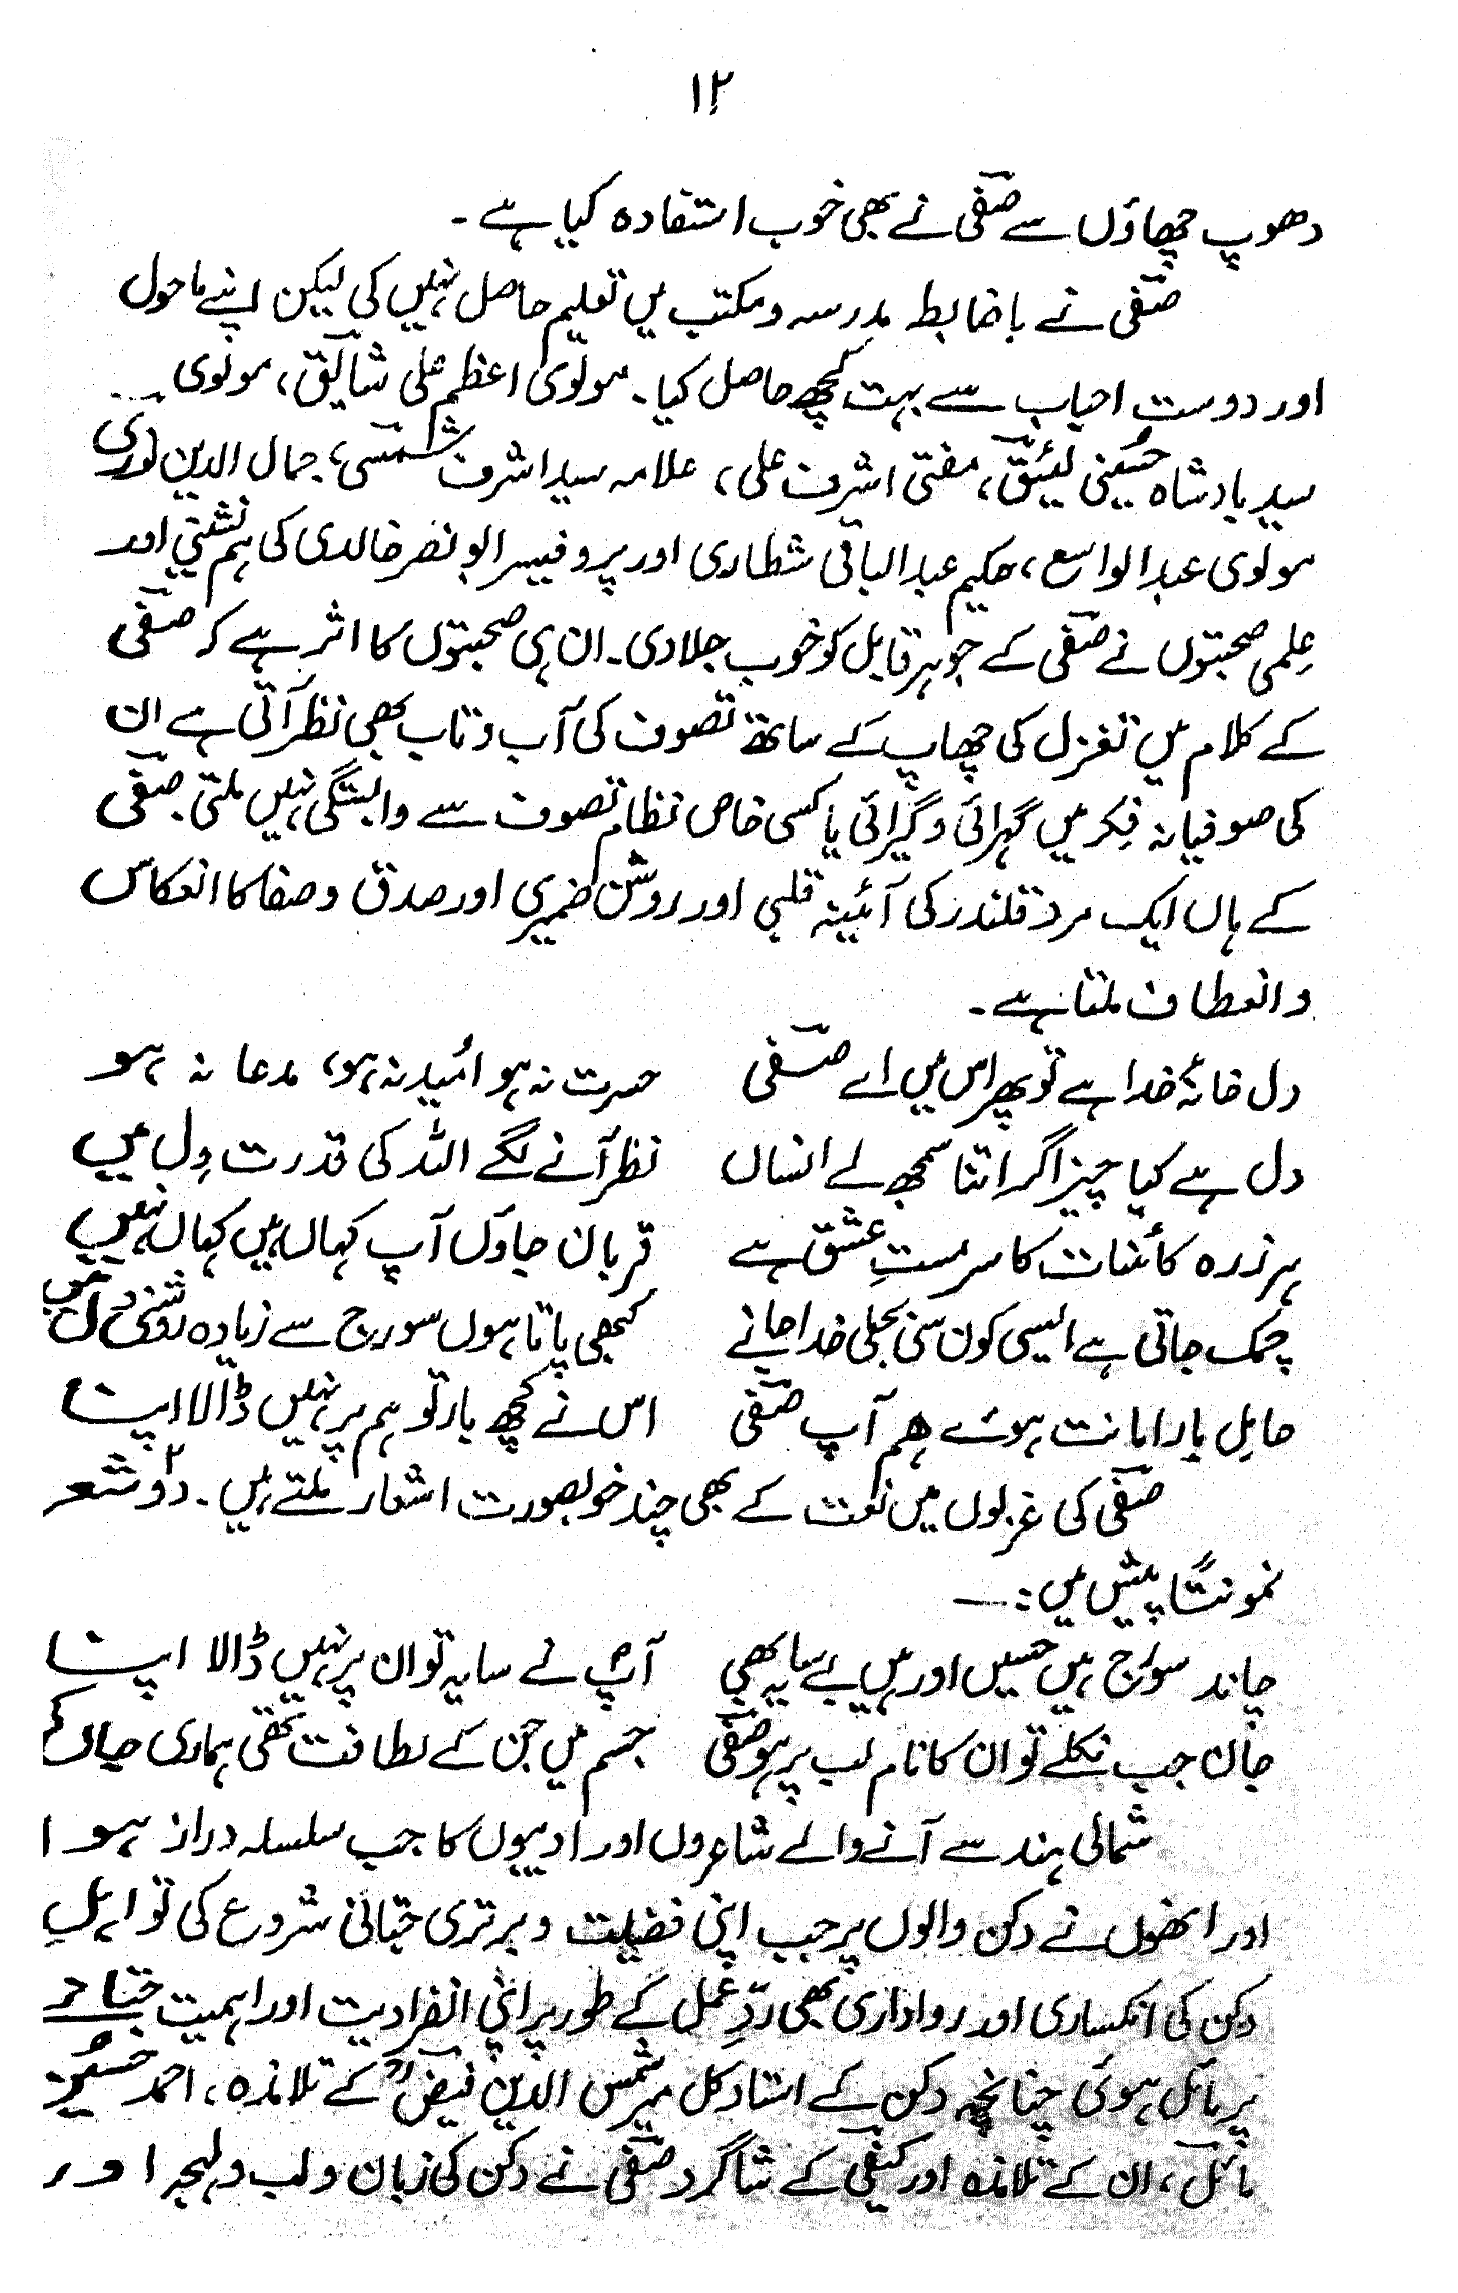 ۱۲
دھوپ چھاؤں سے صفیؔ نے بھی خوب استفادہ کیا ہے ۔
صفیؔ نے باضابطہ مدرسہ و مکتب میں تعلیم حاصل نہیں کی لیکن اپنے ماحول
اور دوست احباب سے بہت کچھ حاصل کیا ۔ مولوی اعظم علی شائقؔ ، مولوی
سید بادشاہ حُسینی لئیقؔ ، مفتی اشرف علی ، علامہ سید اشرف شمسیؔ ، جمال الدین نوریؔ
مولوی عبدالواسع ، حکیم عبدالباقی شطاری اور پروفیسر ابو نصر خالدی کی ہم نشینی اور
عِلمی صحبتوں نے صفیؔ کے جوہر قابل کو خوب جلا دی ۔ ان ہی صحبتوں کا اثر ہے کہ صفیؔ
کے کلام میں تغزل کی چھاپ کے ساتھ تصوف کی آب و تاب بھی نظر آتی ہے ان
کی صوفیانہ فِکر میں گہرائی و گیرائی یا کسی خاص نظام تصوف سے وابستگی نہیں ملتی ۔ صفیؔ
کے ہاں ایک مرد قلندر کی آئینہ قلبی اور روشن ضمیری اور صدق و صفا کا انعکاس
و انعطاف ملتا ہے ۔
دل خانۂ خدا ہے تو پھر اس میں اے صفیؔ حسرت نہ ہو اُمید نہ ہو ، مدعا نہ ہو
دل ہے کیا چیز اگر اتنا سمجھ لے انساں نظر آنے لگے اللہ کی قدرت دِل میں
ہر ذرہ کائنات کا سرمستِ عشق ہے قربان جاؤں آپ کہاں ہیں کہاں نہیں
چمک جاتی ہے ایسی کون سی بجلی خدا جانے کبھی پاتا ہوں سورج سے زیادہ روشنی دل میں
حاملِ بار امانت ہوئے ہم آپ صفیؔ اس نے کچھ بار تو ہم پر نہیں ڈالا اپنا
صفیؔ کی غزلوں میں نعت کے بھی چند خوبصورت اشعار ملتے ہیں ۔ دو ۲ شعر
نمونتاً پیش ہیں : —
چاند سورج ہیں حسیں اور ہیں بے سایہ بھی آپؐ نے سایہ تو ان پر نہیں ڈالا اپنا
جان جب نکلے تو ان کا نام لب پر ہو صفیؔ جسم میں جن کے لطافت تھی ہماری جان کی
شمالی ہند سے آنے والے شاعروں اور ادیبوں کا جب سلسلہ دراز ہوا
اور انھوں نے دکن والوں پر جب اپنی فضیلت و برتری جتانی شروع کی تو اہلِ
دکن کی انکساری اور رواداری بھی ردِّ عمل کے طور پر اپنی انفرادیت اور اہمیت جتانے
پر مائل ہوئی چنانچہ دکن کے استاد کل میر شمس الدین فیضؔ کے تلامذہ ، احمد حسین
مائلؔ ، ان کے تلامذہ اور کیفیؔ کے شاگرد صفیؔ نے دکن کی زبان و لب و لہجہ اور